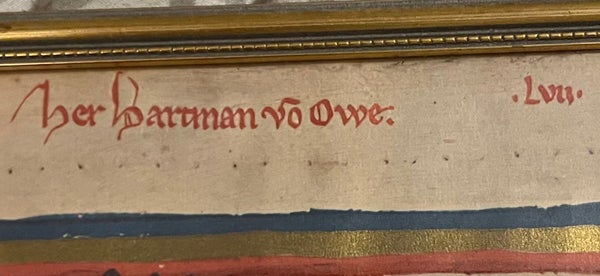 her hartman võ Owe.
·Lvii·